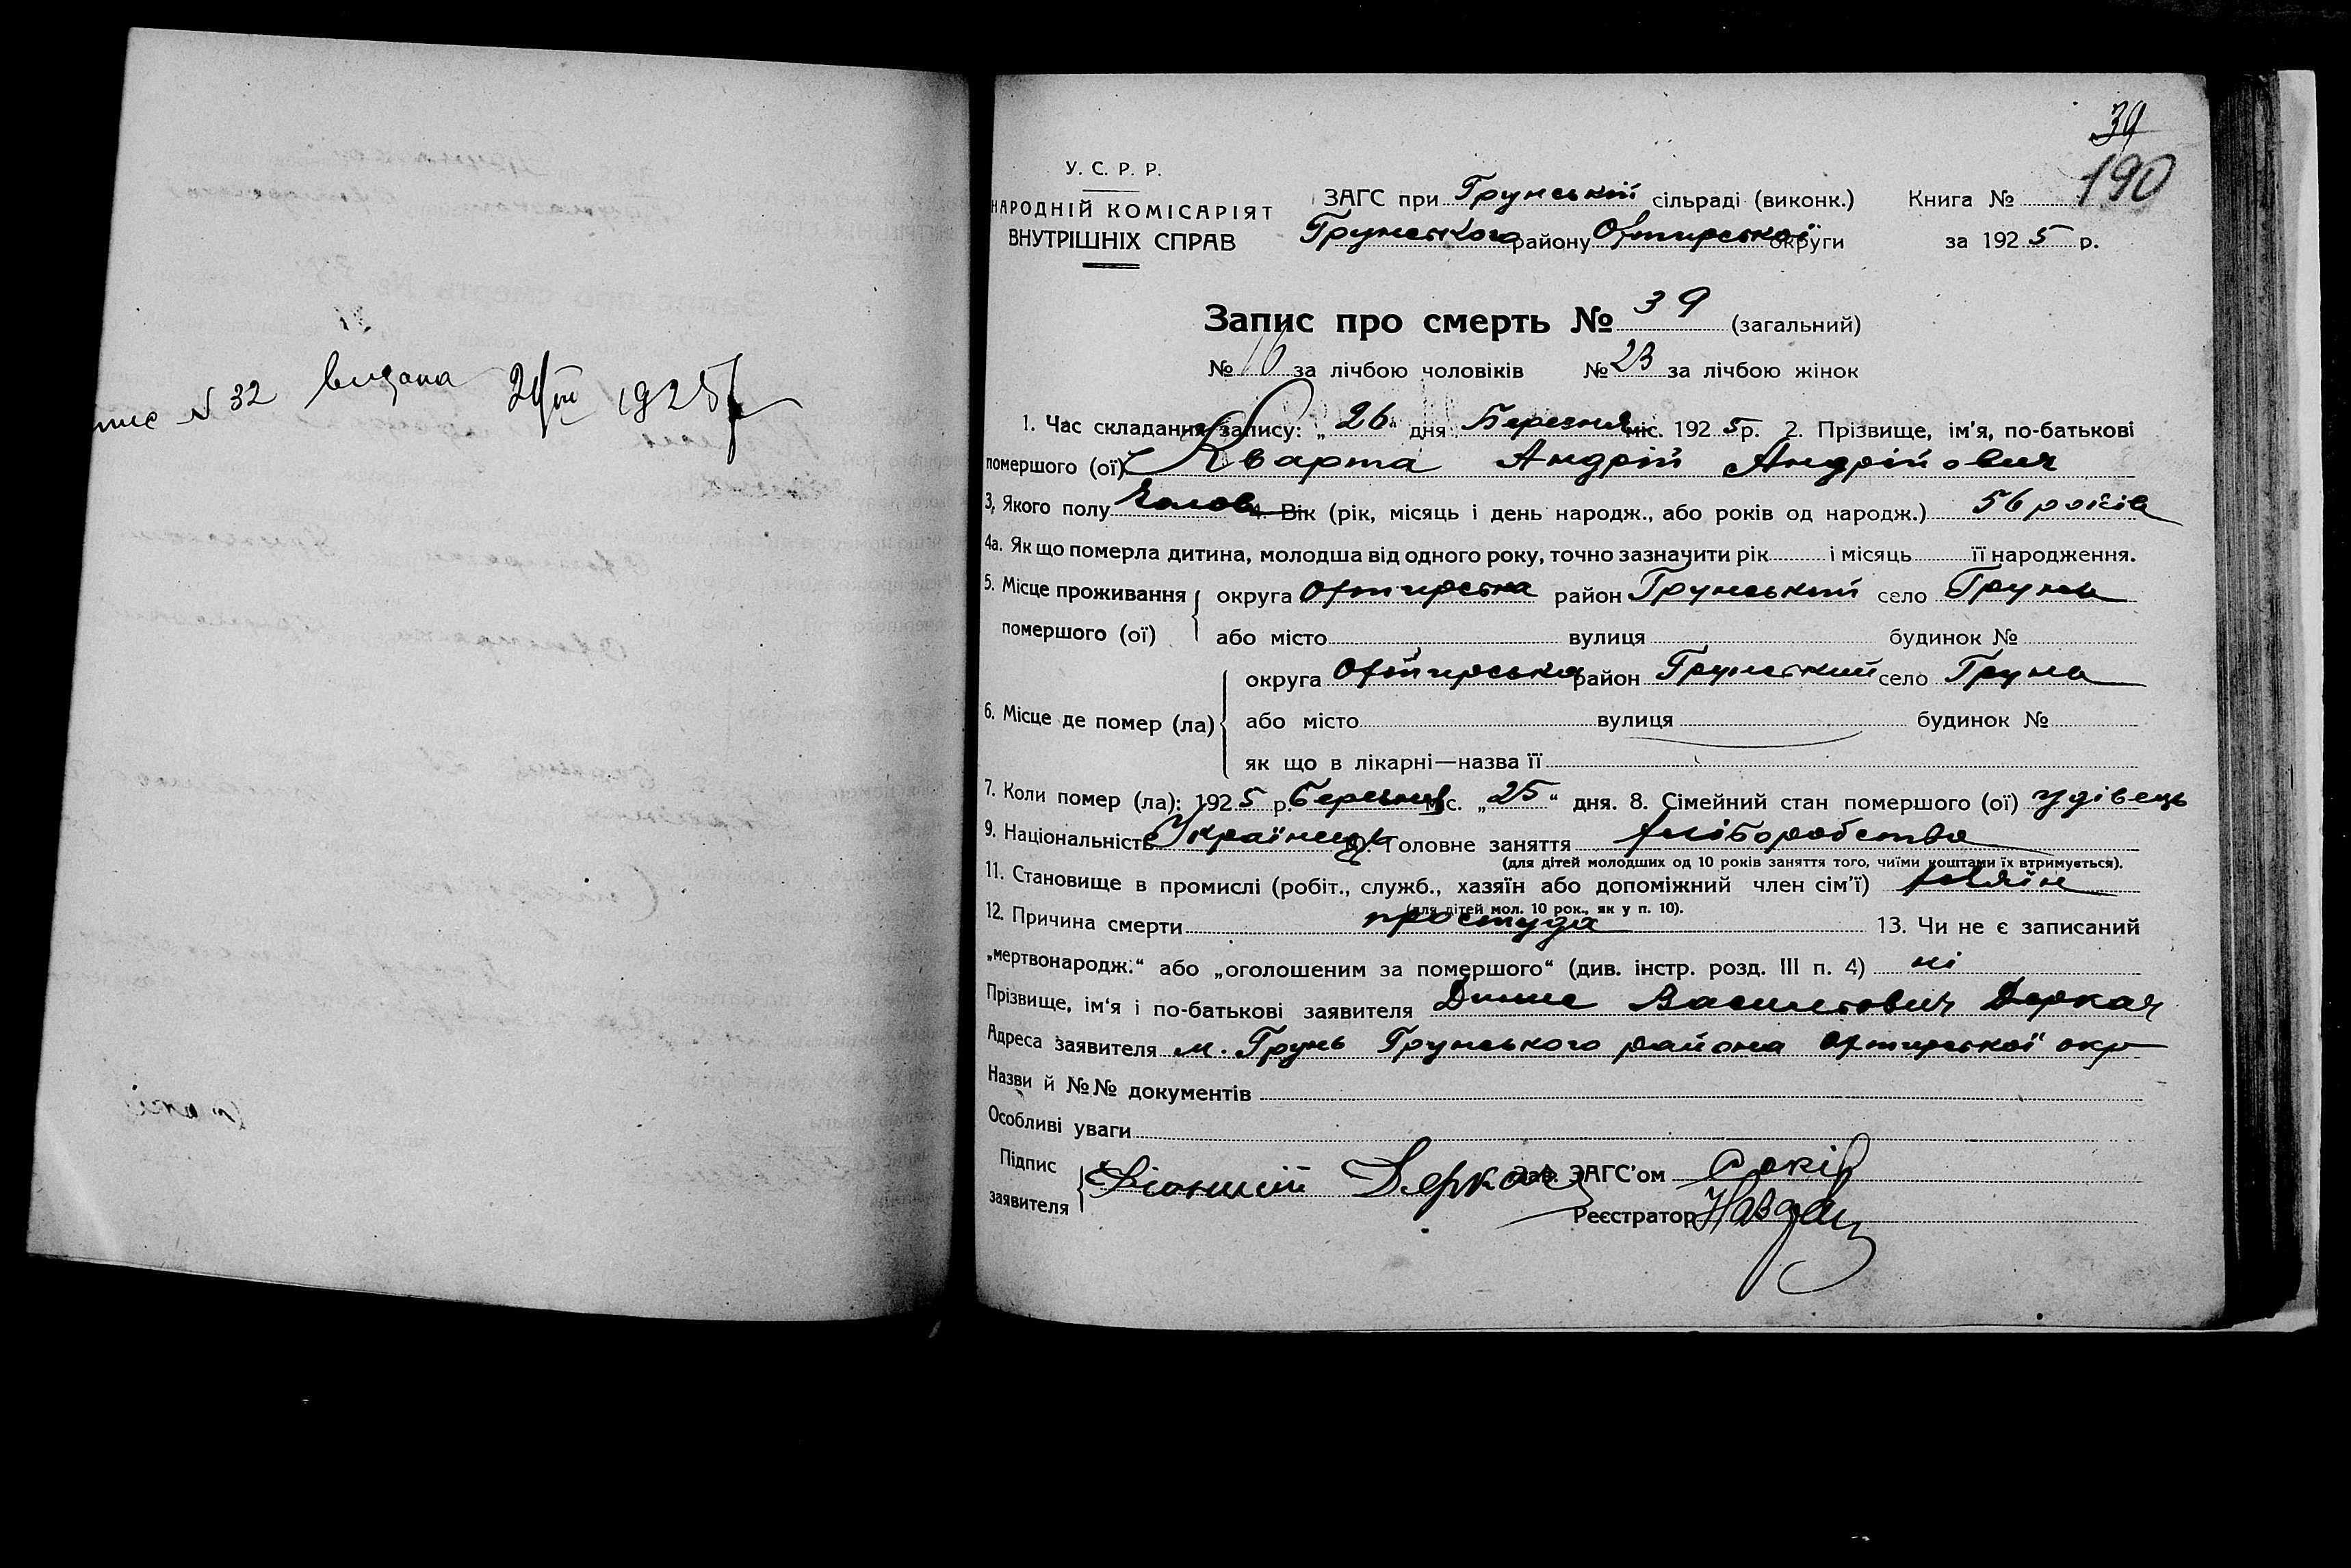 № 32 видана 1925
39
190
У. С. Р. Р.
НАРОДНІЙ КОМІСАРІЯТ
ВНУТРІШНІХ СПРАВ
ЗАГС при Грунській сільраді (виконк.) Книга №
Грунського району Охтирської округи за 1925 р.
Запис про смерть № 39 (загальний)
№ 16 за лічбою чоловіків № 23 за лічбою жінок
1. Час складання запису: „26" дня Березня міс. 1925 р. 2. Прізвище, ім'я, по-батькові
помершого (ої) Кварта Андрій Андрійович
3, Якого полу Чолов 4. Вік (рік, місяць і день народж., або років од народж.) 56 років
4а. Як що померла дитина, молодша від одного року, точно зазначити рік і місяць її народження.
5. Місце проживання помершого (ої) округа Охтирська район Грунський село Грунь
або місто вулиця будинок №
6. Місце де помер (ла) округа Охтирська район Грунський село Грунь
або місто вулиця будинок №
як що в лікарні—назва її
7. Коли помер (ла): 1925 р. Березня міс. „25" дня. 8. Сімейний стан помершого (ої) удівець
9. Національність Українець 10. Головне заняття хліборобство
(для дітей молодших од 10 років заняття того, чиїми коштами їх втримується).
11. Становище в промислі (робіт., служб., хазяїн або допоміжний член сім'ї) хазяїн
(для дітей мол. 10 рок., як у п. 10).
12. Причина смерти простуда 13. Чи не є записаний
„мертвонародж." або „оголошеним за помершого" (див. інстр. розд. III п. 4) ні
Прізвище, ім'я і по-батькові заявителя Динис Васильович Деркач
Адреса заявителя м. Грунь Грунського района Охтирської окр
Назви й №№ документів
Особливі уваги
Підпис заявителя Діонисій Деркач Зав. ЗАГС'ом
Реєстратор